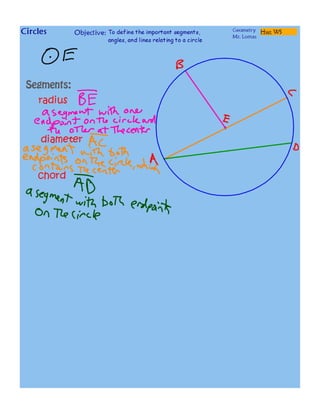 Circles
Objective: To define the important segments,
angles, and lines relating to a circle
Geometry
Mr. Lomas
Hw: W5
⊙E
Segments:
radius BE
a segment with one
endpoint on the circle and
the other at the center
diameter AC
a segment with both
endpoints on the circle, which
contains the center
chord AD
a segment with both endpoints
on the circle
B
C
E
A
D